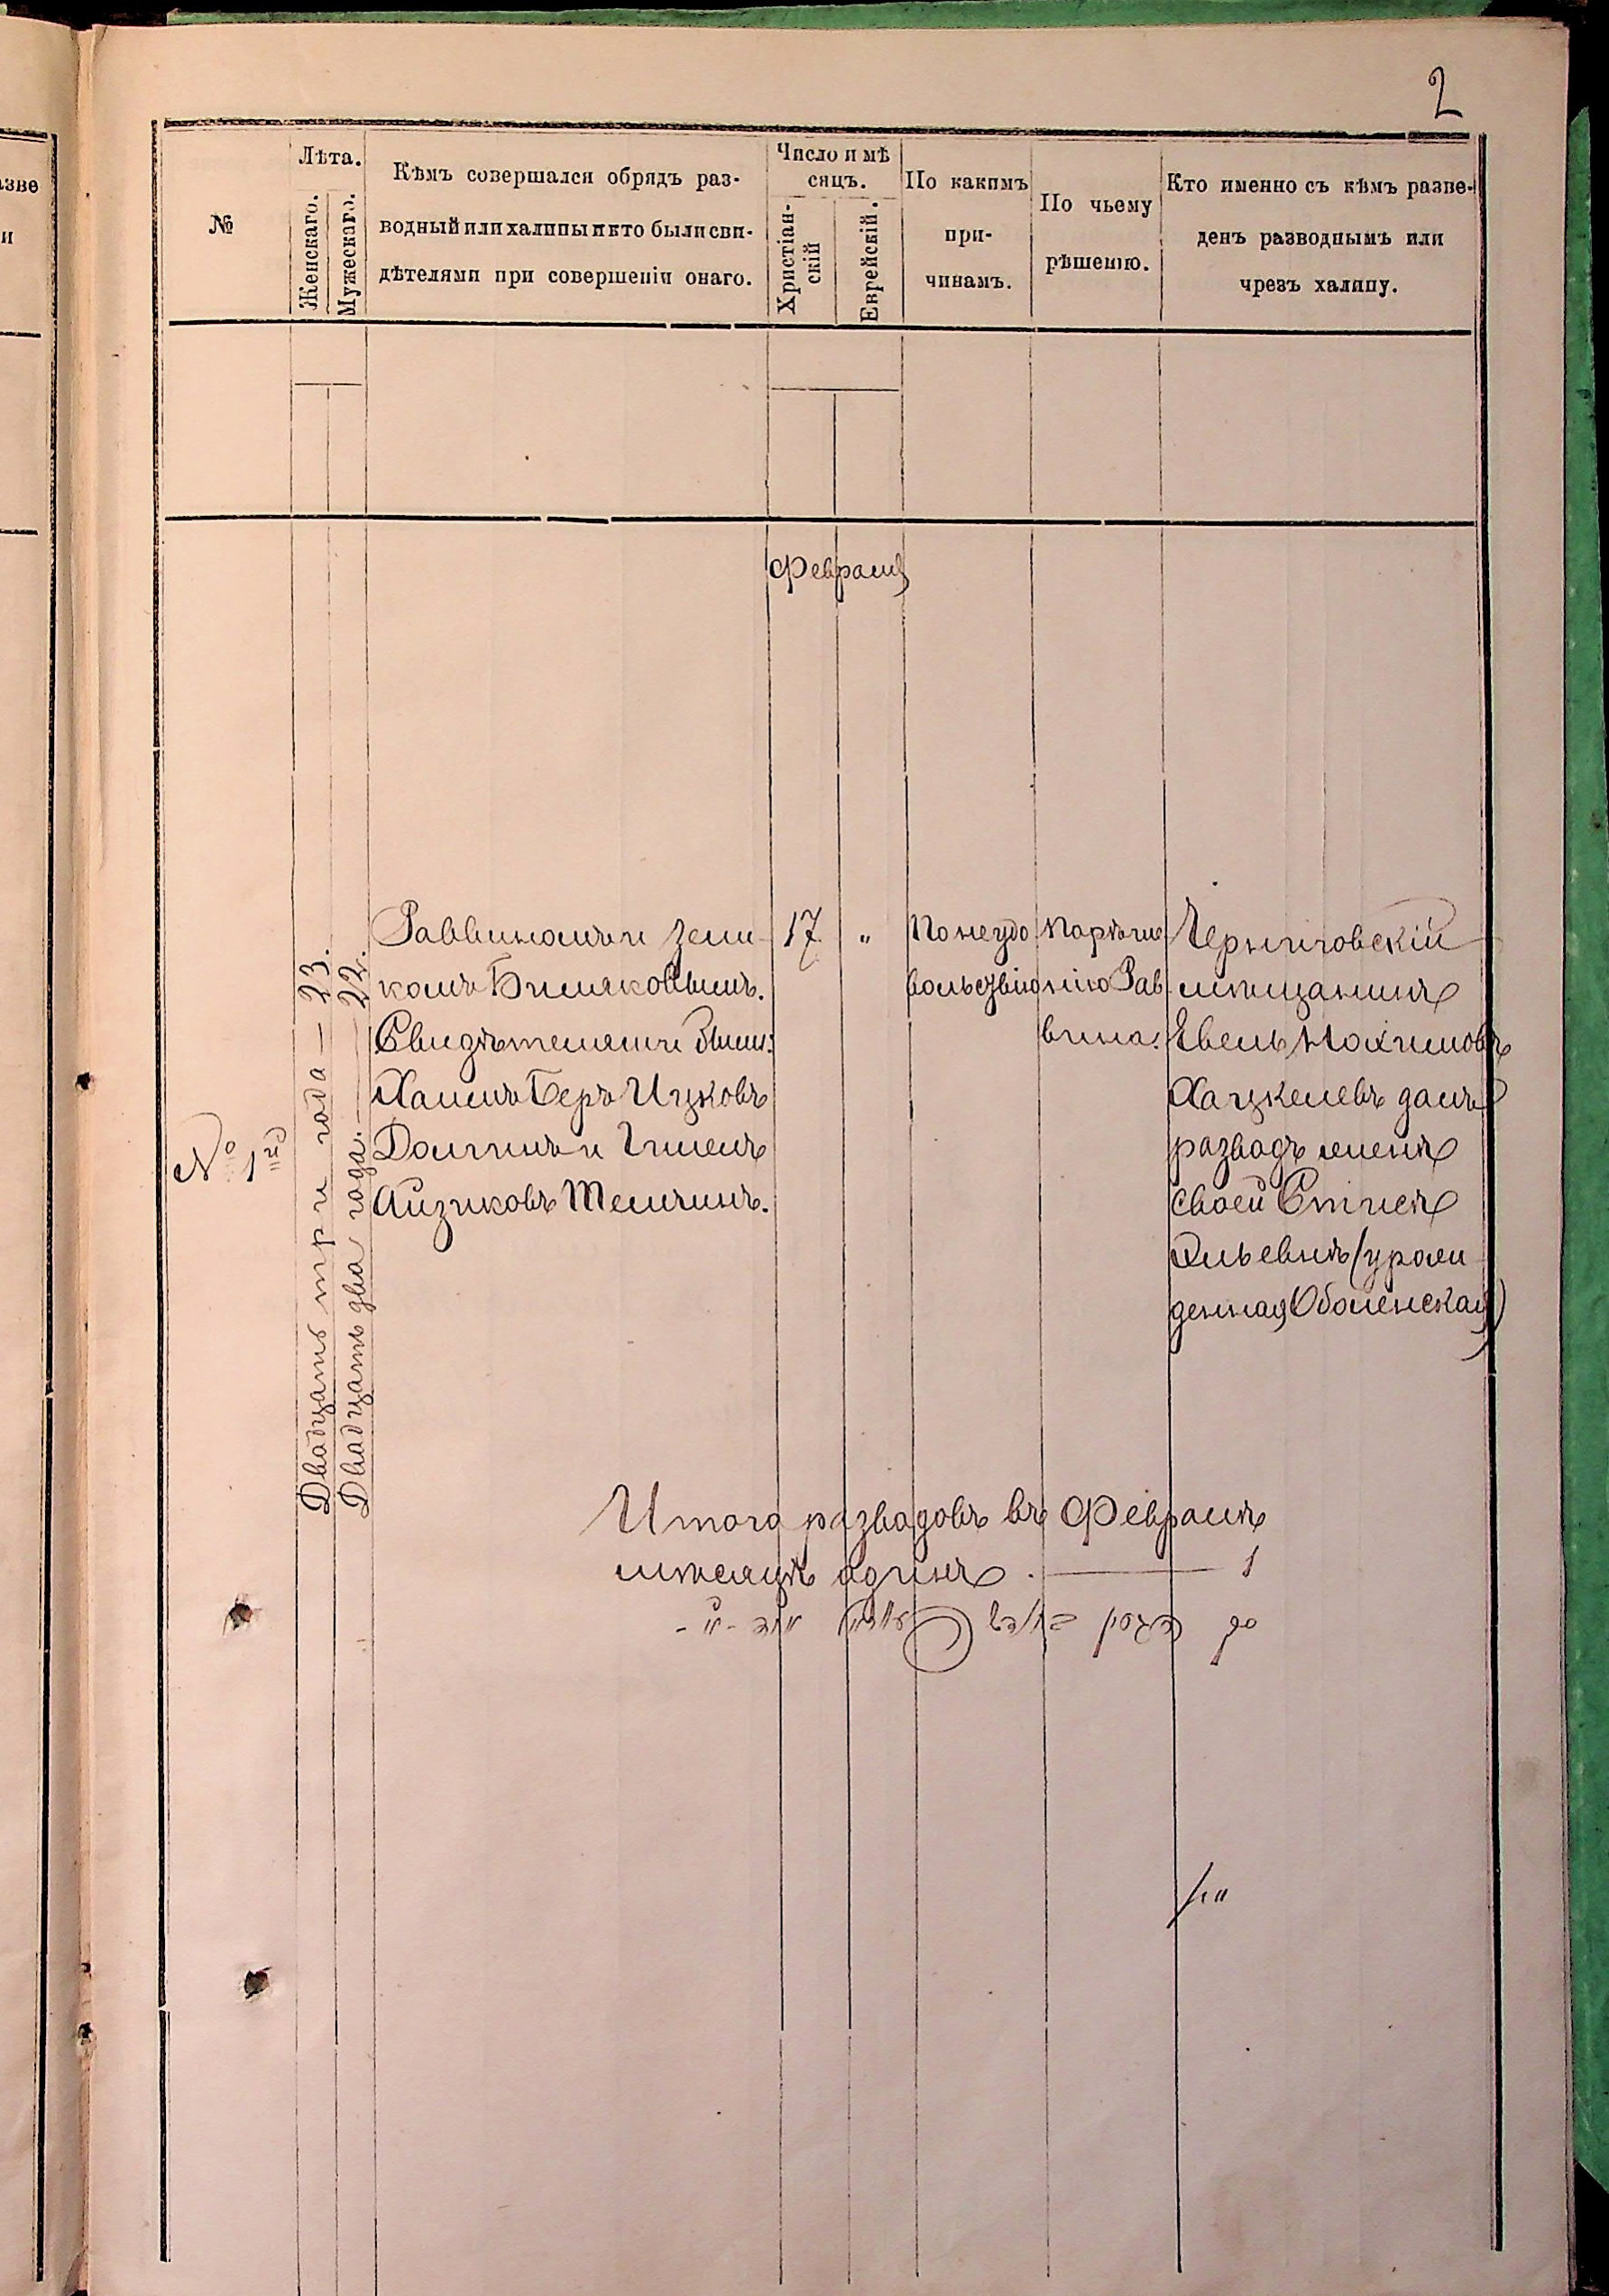 2
№
Лѣта.
Женскаго.
Мужескаго.
Кѣмъ совершался обрядъ раз-
водный или халицы и кто были сви-
дѣтелями при совершеніи онаго.
Число и мѣ
сяцъ.
Христіан-
скій
Еврейскій.
По какимъ
при-
чинамъ.
По чьему
рѣшенію.
Кто именно съ кѣмъ разве-
денъ разводнымъ или
чрезъ халицу.
Февраль
№ 1й
Двадцать три года — 23.
Двадцать два года. — 22.
Раввиномъ
Свидѣтелями были:
Хаимъ Беръ Ицковъ
и
Айзиковъ
17
"
По неудо
вольствію
По рѣше
нію Рав
вина.
Черниговскій
мѣщанинъ
Евель
Хацкелевъ далъ
разводъ женѣ
своей
(урож
денная Оболенская)
Итого разводовъ въ Февралѣ
мѣсяцѣ одинъ. — 1